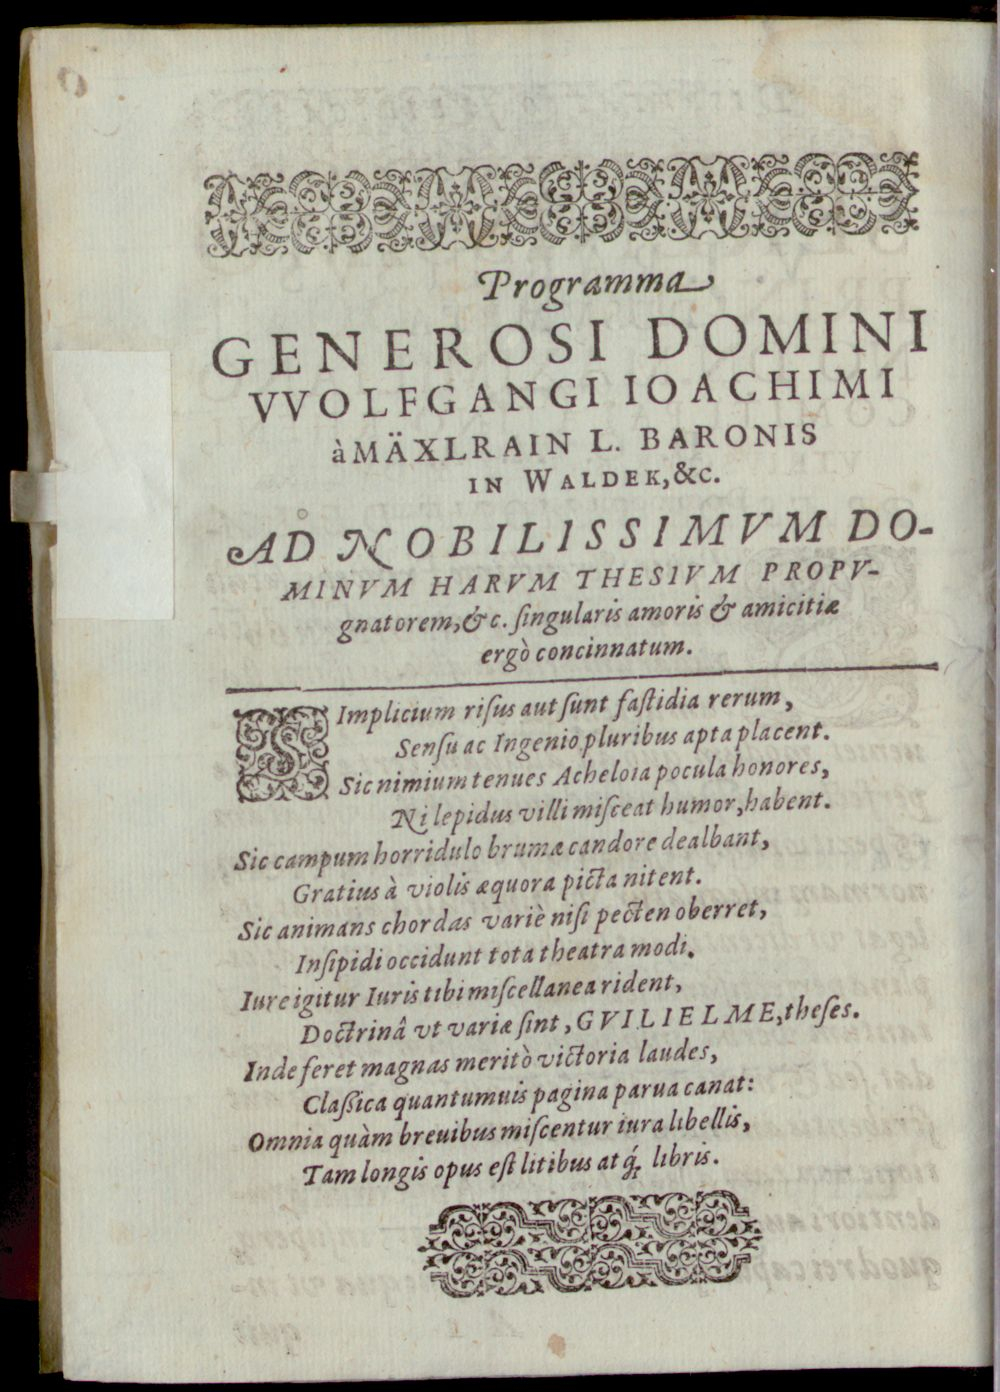 Programma
GENEROSI DOMINI
VVOLFGANGI IOACHIMI
à MÄXLRAIN L. BARONIS
IN WALDEK, &c.
AD NOBILISSIMVM DO-
MINVM HARVM THESIVM PROPV-
gnatorem, & c. ſingularis amoris & amicitiæ
ergò concinnatum.
SImplicium riſus aut ſunt faſtidia rerum,
Senſu ac Ingenio pluribus apta placent.
Sic nimium tenues Acheloia pocula honores,
Ni lepidus villi miſceat humor, habent.
Sic campum horridulo brumæ candore dealbant,
Gratius à violis æquora picta nitent.
Sic animans chordas variè niſi pecten oberret,
Inſipidi occidunt tota theatra modi.
Iure igitur Iuris tibi miſcellanea rident,
Doctrinâ vt variæ ſint, GVILIELME, theſes.
Inde feret magnas meritò victoria laudes,
Claſſica quantumuis pagina parua canat:
Omnia quàm breuibus miſcentur iura libellis,
Tam longis opus eſt litibus atq́; libris.